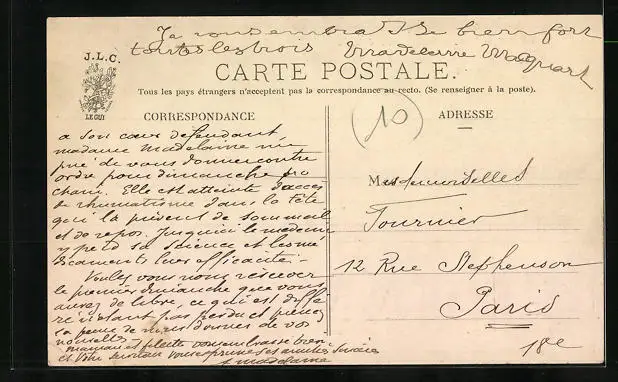 Je vous embrasse bien fort
toutes les trois Madeleine
J.L.C.
LE GUI
CARTE POSTALE.
Tous les pays étrangers n'acceptent pas la correspondance au recto. (Se renseigner à la poste).
CORRESPONDANCE
a son cœur défendant,
madame Madeleine me
prie de vous donner contre
ordre pour dimanche pro
chain. Elle est atteinte d'accès
de rhumatisme dans la tête
qui la privent de sommeil
et de repos. Jusqu'ici le médecin
y perd sa science et les mé
dicaments leur efficacité. -
Voulez vous nous réserver
le premier dimanche que vous
aurez de libre, ce qui est diffé
ré n'étant pas perdu et prenez
la peine de nous donner de vos
nouvelles
maman et fillette vous embrasse bien
et vous amitiés
Madeleine
ADRESSE
(10)
Mesdemoiselles
Fournier
12 Rue Stephenson
Paris
18e